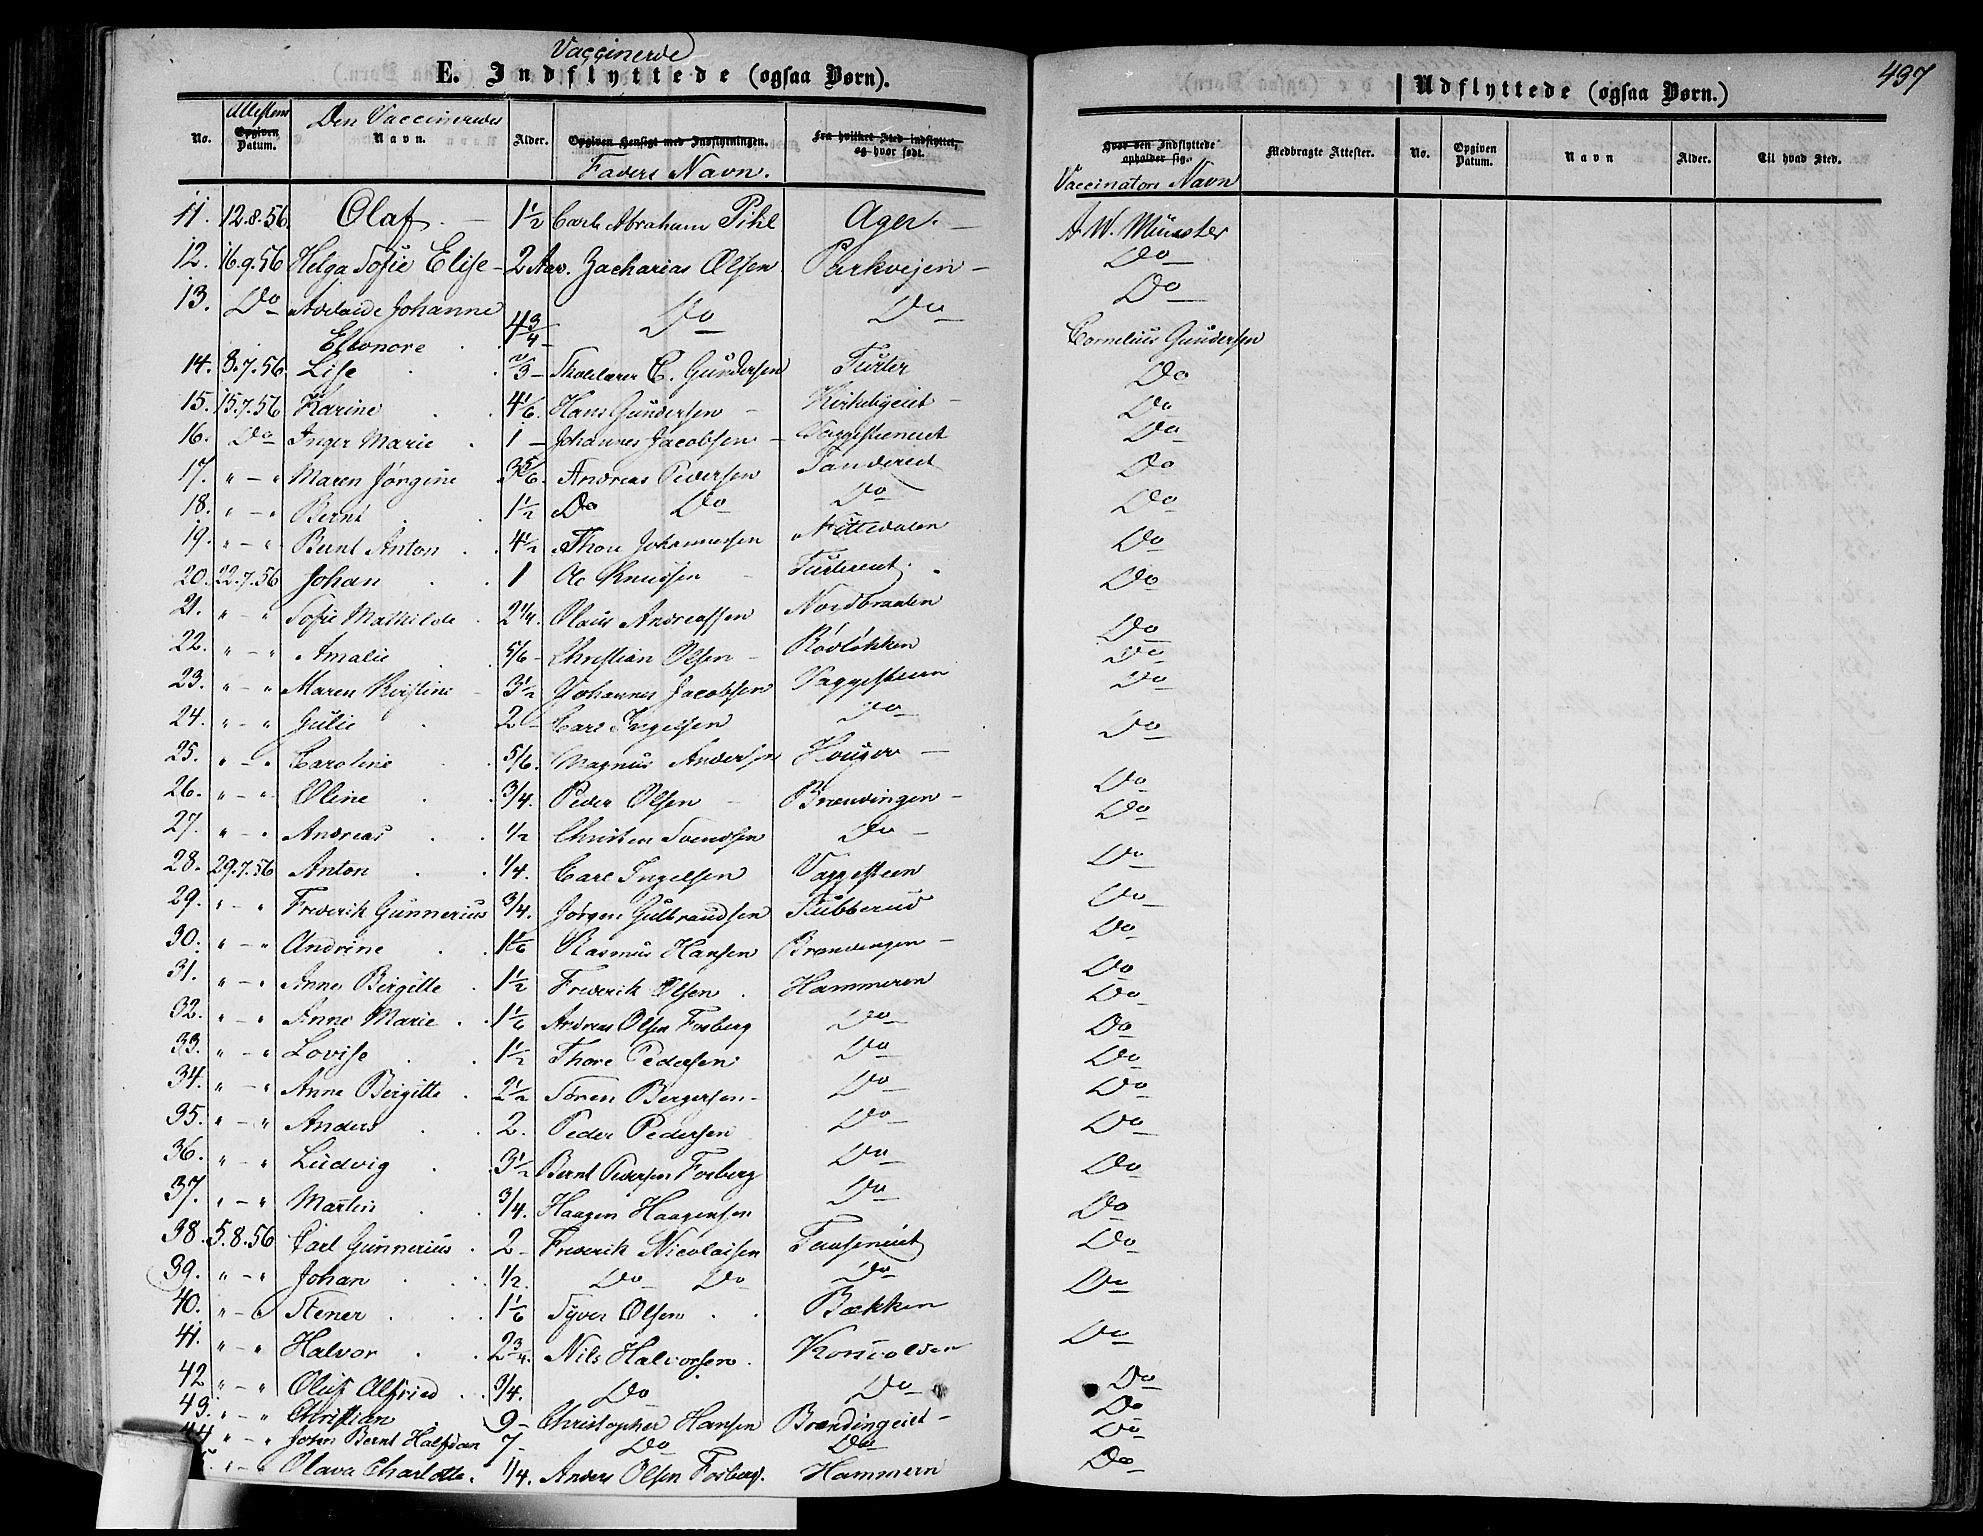 Vaccinerde
E. Indflyttede (ogsaa Børn).
Udflyttede (ogsaa Børn.)
437
No. Attestens Opgiven Datum. Den Vaccineredes Navn. Alder. Opgiven Hensigt med Indflytningen. Faders Navn. Fra hvilket Sted indflyttet, og hvor født. Hvor den Indflyttede opholder sig. Vaccinators Navn Medbragte Attester. No. Opgiven Datum. Navn Alder. Til hvad Sted.
11. 12.8.56. Olaf. 1 1/2 Carl Abraham Pihl Ager. A W. Münster
12. 16.9.56 Helga Sofie Elise 2 Aar. Zacharias Olsen Parkvejen Do
13. Do Adelaide Johanne Do Do Do
Eleonore 4 3/4
14. 8.7.56 Lise 2/3 C. Gundersen Turter Cornelius Gundersen
15. 15.7.56 Karine 4 1/6 Hans Gundersen Kirkebyeiet Do
16. Do Inger Marie 1 Johannes Jacobsen Vaggesteneiet Do
17. " - " Maren Jørgine 3 5/6 Andreas Pedersen Do
18. " - " Bernt 1 1/2 Do Do Do Do
19. " - " Bernt Anton 4 1/2 Thore Johannesen Nittedalen Do
20. 22.7.56 Johan 1 Ole Knudsen Turtereiet Do
21. " - " Sofie Mathilde 2 1/4 Olaus Andreassen Nordbraaten Do
22. " - " Amalie 5/6 Christian Olsen Rødløkken Do
23. " - " Maren Kirstine 3 1/2 Johannes Jacobsen Vaggesteen Do
24. " - " Gulie 2 Carl Ingelsen Do Do
25. " - " Caroline 5/6 Magnus Andersen Houger Do
26. " - " Oline 3/4 Peder Olsen Brændingen Do
27. " - " Andreas 1/2 Christen Svendsen Do Do
28. 29.7.56 Anton 1/4 Carl Ingelsen Vaggesteen Do
29. " - " Frederik Gunnerius 3/4 Jørgen Gulbrandsen Tubberud Do
30. " - " Andrine 1 1/6 Rasmus Hansen Brændingen Do
31. " - " Anne Birgitte 1 1/2 Frederik Olsen Hammeren Do
32. " - " Anne Marie 1 1/6 Andreas Olsen Fosberg Do Do
33. " - " Lovise 1 1/2 Thore Pedersen Do Do
34. " - " Anne Birgitte 2 1/2 Søren Bergersen Do Do
35. " - " Anders 2 Peder Pedersen Do Do
36. " - " Ludvig 3 1/2 Bernt Pedersen Fosberg Do Do
37. " - " Martin 3/4 Haagen Haagensen Do Do
38. 5.8.56 Carl Gunnerius 2 Frederik Nicolaisen Do
39. " - " Johan 1/2 Do Do Do Do
40. " - " Stener 1 1/6 Syver Olsen Bækken Do
41. " - " Halvor 2 3/4 Nils Halvorsen Do
42 " - " Oluf Alfried 3/4 Do Do Do
43. " - " Christian 9 Christopher Hansen Brændingeiet Do
44 " - " Johan Bernt Halfdan 7 Do Do Do
" - " Olava Charlotte 1/4 Anders Olsen Fosberg. Hammern Do